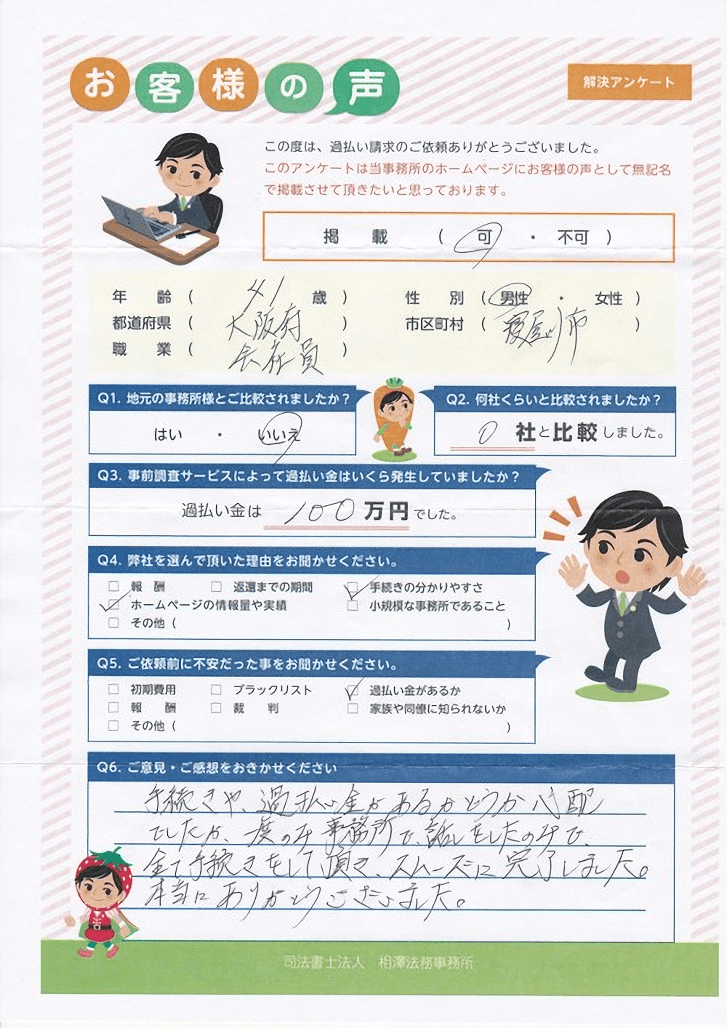 お客様の声
解決アンケート
この度は、過払い請求のご依頼ありがとうございました。
このアンケートは当事務所のホームページにお客様の声として無記名
で掲載させて頂きたいと思っております。
掲 載 （ 可 ・ 不可 ）
年 齢 （ 41 歳 ） 性 別 （ 男性 ・ 女性 ）
都道府県 （ 大阪府 ） 市区町村 （ 寝屋川市 ）
職 業 （ 会社員 ）
Q1. 地元の事務所様とご比較されましたか？
はい ・ いいえ
Q2. 何社くらいと比較されましたか？
0 社と比較しました。
Q3. 事前調査サービスによって過払い金はいくら発生していましたか？
過払い金は 100 万円でした。
Q4. 弊社を選んで頂いた理由をお聞かせください。
□ 報 酬 □ 返還までの期間 ☑ 手続きの分かりやすさ
☑ ホームページの情報量や実績 □ 小規模な事務所であること
□ その他（ ）
Q5. ご依頼前に不安だった事をお聞かせください。
□ 初期費用 □ ブラックリスト ☑ 過払い金があるか
□ 報 酬 □ 裁 判 □ 家族や同僚に知られないか
□ その他（ ）
Q6. ご意見・ご感想をおきかせください
手続きや、過払い金があるかどうか心配
でしたが、一度のみ事務所で、話しをしたのみで、
全て手続きをして頂き、スムーズに完了しました。
本当にありがとうございました。
司法書士法人 相澤法務事務所